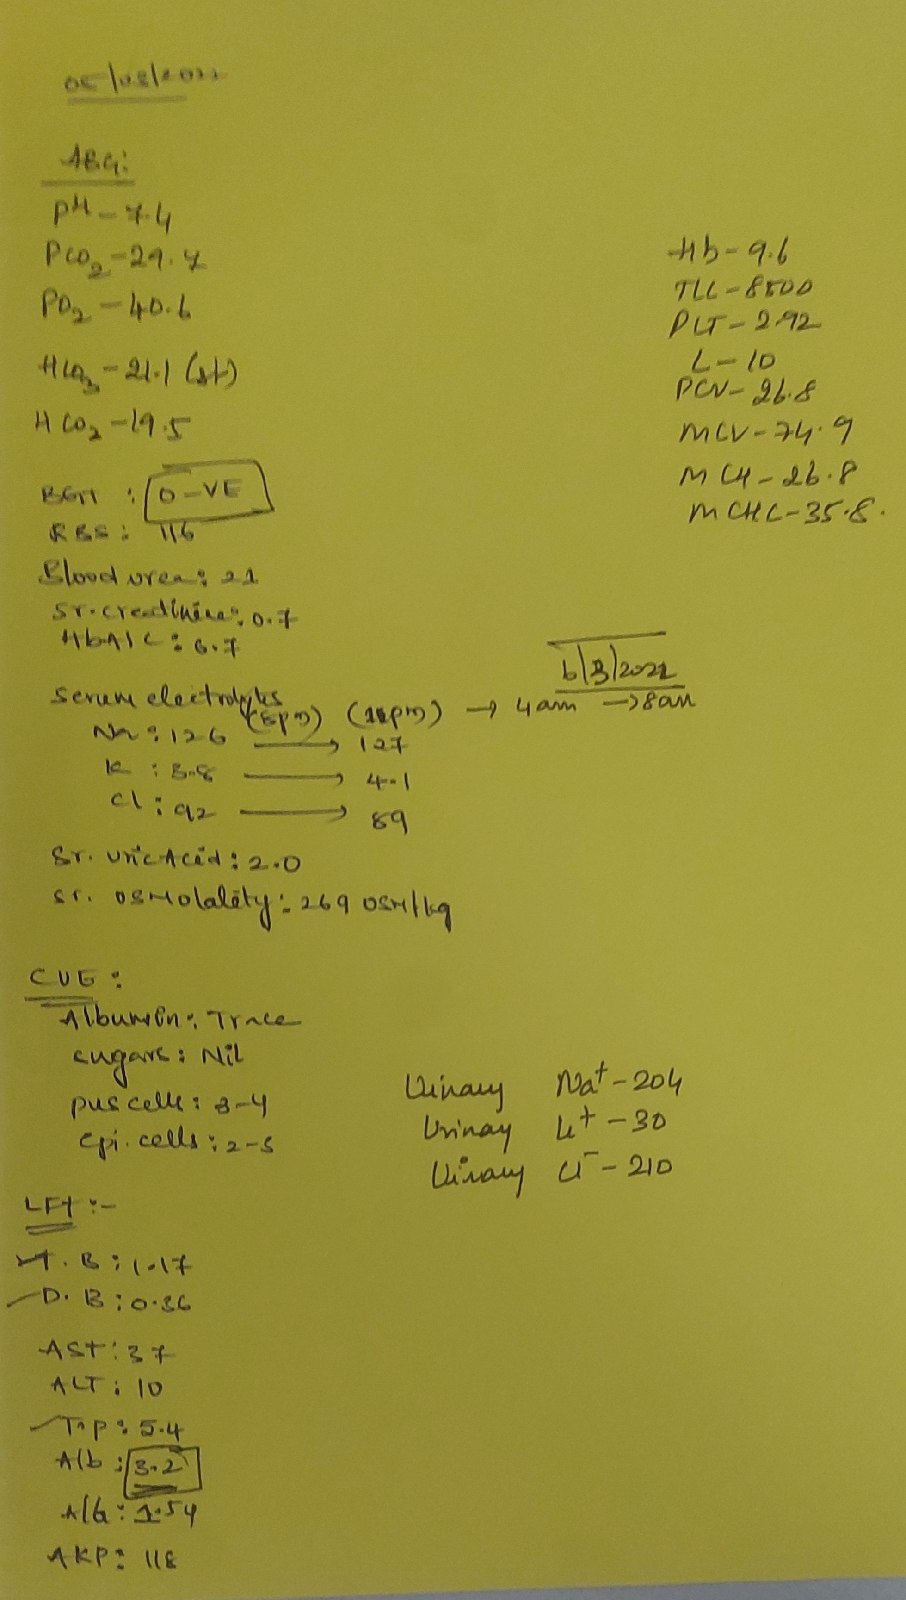 05/03/2022
ABG:
PH - 7.4
PCO2 - 29.7
PO2 - 40.6
HCO3 - 21.1 (st)
HCO3 - 19.5
Hb - 9.6
TLC - 8500
PLT - 2.92
L - 10
PCV - 26.8
MCV - 74.9
MCH - 26.8
MCHC - 35.8.
BGT : O -VE
RBS : 116
Blood urea : 21
Sr. creatinine : 0.7
HbA1C : 6.7
6/3/2022
serum electrolytes (5pm) → 4am → 8am
Na : 126 → 127
K : 3.8 → 4.1
Cl : 92 → 89
Sr. Uric Acid : 2.0
sr. osmolality : 269 osm/kg
CUE :
Albumin : Trace
sugars : Nil
pus cells : 3-4
Epi. cells : 2-3
Urinary Na+ - 204
Urinary K+ - 30
Urinary Cl- - 210
LFT :-
T. B : 1.17
D. B : 0.36
AST : 37
ALT : 10
T.p : 5.4
Alb : 3.2
A/G : 1.54
AKP : 118